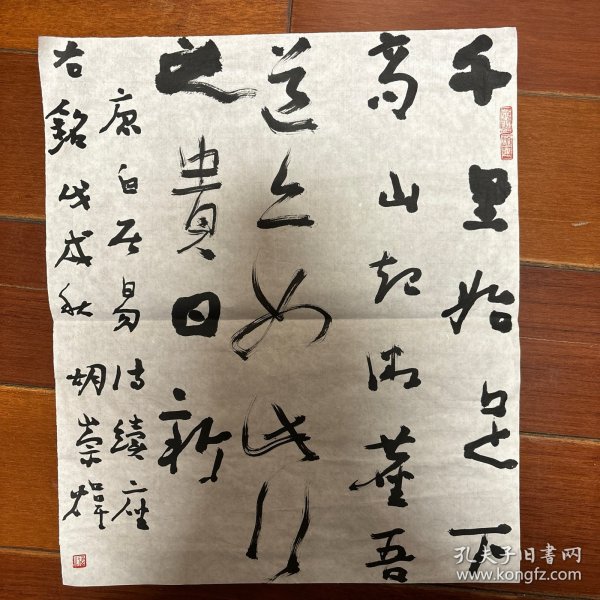 千里始足下
高山起微塵吾
道亦如此行
之貴日新
唐白居易诗續座
右銘 戊戌秋 胡崇煒
孔夫子旧书网
www.kongfz.com